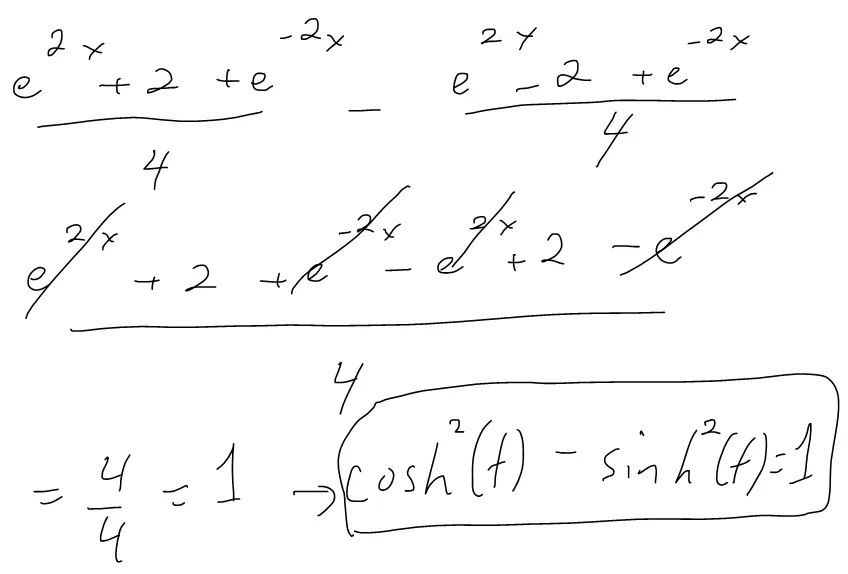 e^{2x} + 2 + e^{-2x} / 4 - e^{2x} - 2 + e^{-2x} / 4
e^{2x} + 2 + e^{-2x} - e^{2x} + 2 - e^{-2x} / 4
= 4/4 = 1 → cosh²(t) - sinh²(t) = 1